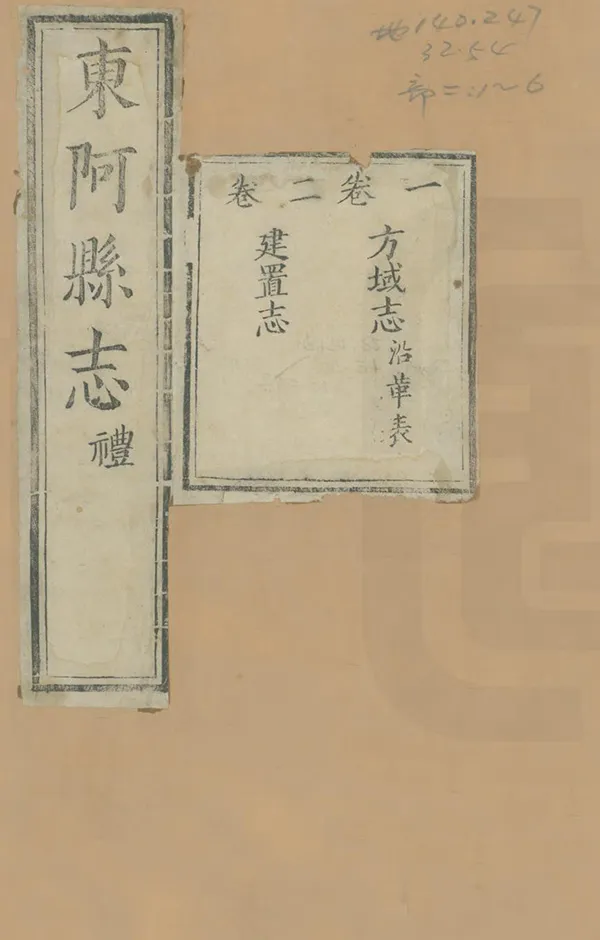 東阿縣志 禮
一卷二卷
方域志 沿革表
建置志
地140.247
32.54
部二:1~6